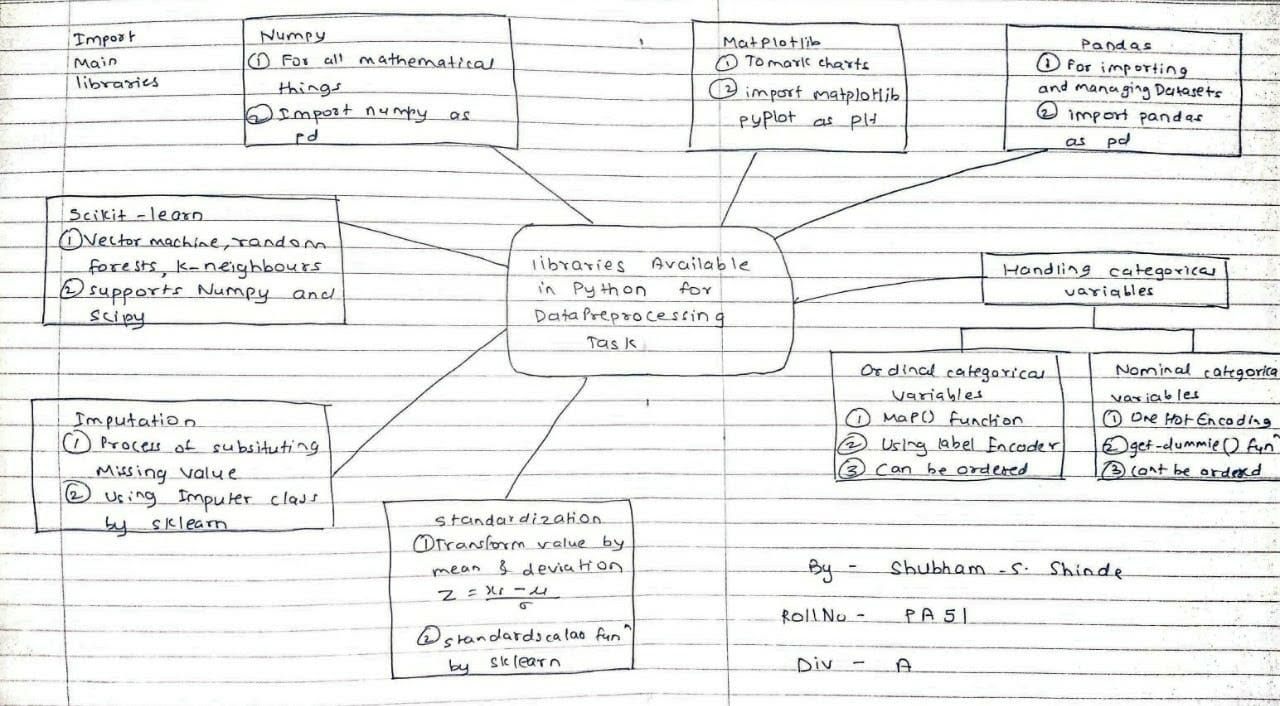 Import
Main
libraries
Numpy
① For all mathematical
things
② Import numpy as
pd
Matplotlib
① To mark charts
② import matplotlib
pyplot as plt
Pandas
① For importing
and managing Datasets
② import pandas
as pd
Scikit-learn
① Vector machine, random
forests, k-neighbours
② supports Numpy and
Scipy
libraries Available
in Python for
DataPreprocessing
Task
Handling categorical
variables
Ordinal categorical
variables
① Map() function
② Using label Encoder
③ Can be ordered
Nominal categorica
variables
① One Hot Encoding
② get-dummie() funⁿ
③ cant be orderd
Imputation
① Process of subsituting
Missing value
② Using Imputer class
by sklearn
Standardization
① Transform value by
mean & deviation
Z = xi - μ
σ
② standardscalao funⁿ
by sklearn
By - Shubham -S. Shinde
Roll No - PA 51
Div - A